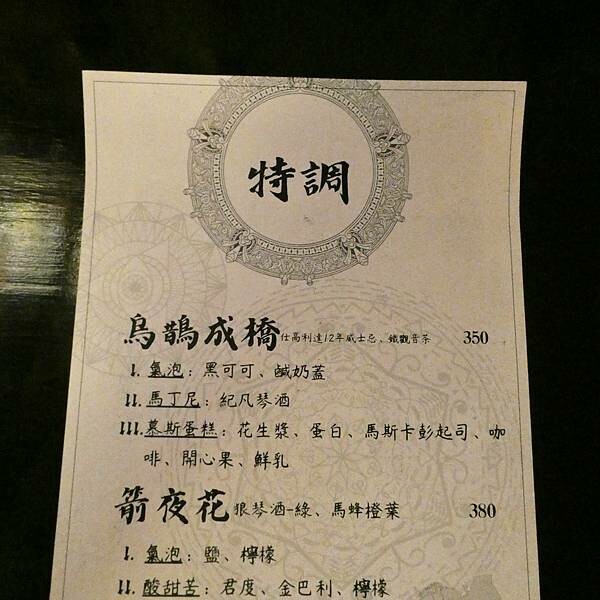 特調
烏鵲成橋 仕高利達12年威士忌、鐵觀音茶 350
I. 氣泡：黑可可、鹹奶蓋
II. 馬丁尼：紀凡琴酒
III. 慕斯蛋糕：花生漿、蛋白、馬斯卡彭起司、咖
啡、開心果、鮮乳
箭夜花 狼琴酒-綠、馬蜂橙葉 380
I. 氣泡：鹽、檸檬
II. 酸甜苦：君度、金巴利、檸檬